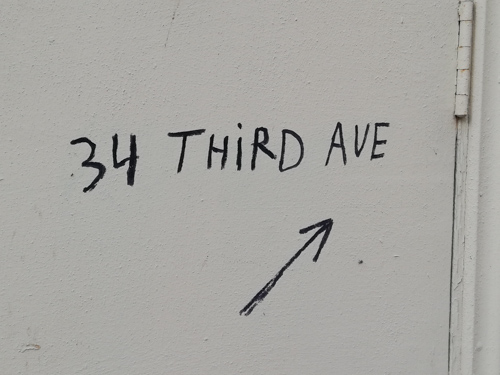 34 THiRD AVE